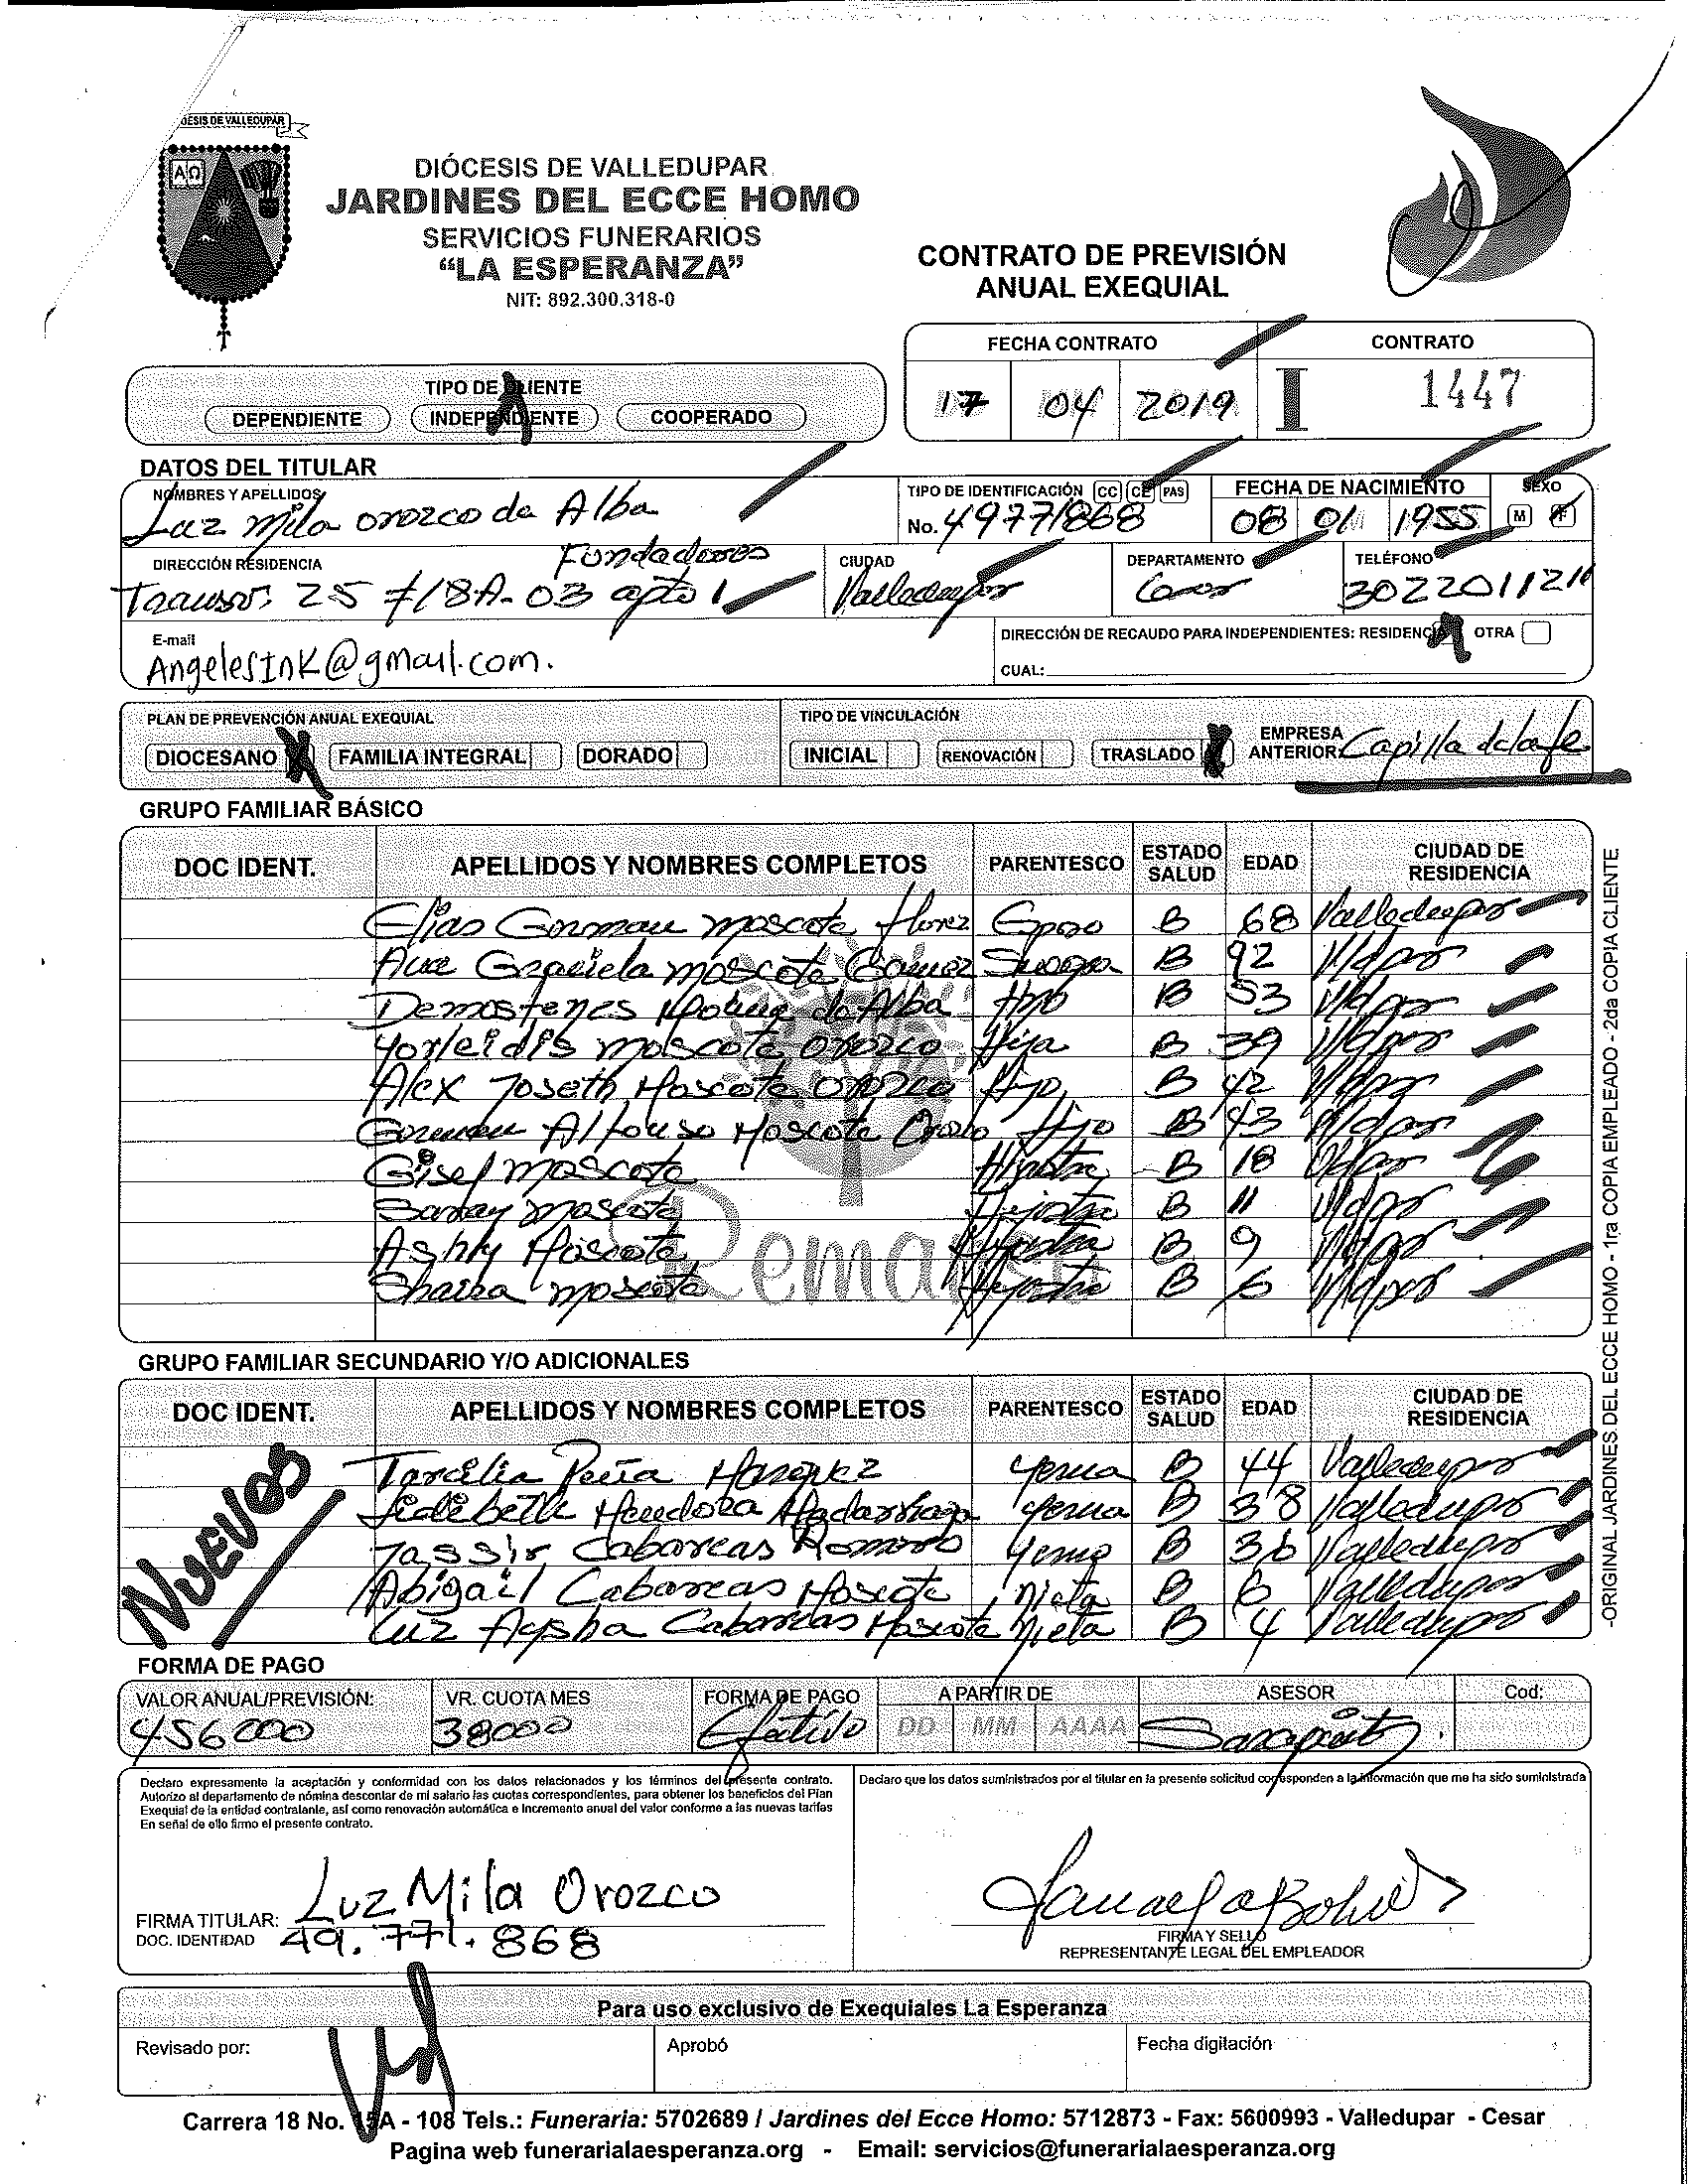 DIÓCESIS DE VALLEDUPAR
ΑΩ
DIÓCESIS DE VALLEDUPAR
JARDINES DEL ECCE HOMO
SERVICIOS FUNERARIOS
“LA ESPERANZA”
NIT: 892.300.318-0
CONTRATO DE PREVISIÓN
ANUAL EXEQUIAL
FECHA CONTRATO CONTRATO
17 04 2019 I 1447
TIPO DE CLIENTE
DEPENDIENTE INDEPENDIENTE COOPERADO
DATOS DEL TITULAR
NOMBRES Y APELLIDOS TIPO DE IDENTIFICACIÓN CC CE PAS FECHA DE NACIMIENTO SEXO
Luz Mila Orozco de Alba No. 49771868 08 01 1955 M F
DIRECCIÓN RESIDENCIA Fundadores CIUDAD DEPARTAMENTO TELÉFONO
Transv. 25 #18A-03 apto 1 Valledupar Cesar
E-mail DIRECCIÓN DE RECAUDO PARA INDEPENDIENTES: RESIDENCIA OTRA
AngelesInk@gmail.com. CUAL:
PLAN DE PREVENCIÓN ANUAL EXEQUIAL TIPO DE VINCULACIÓN
DIOCESANO X FAMILIA INTEGRAL DORADO INICIAL RENOVACIÓN TRASLADO X EMPRESA ANTERIOR: Capilla de la fe
GRUPO FAMILIAR BÁSICO
DOC IDENT. APELLIDOS Y NOMBRES COMPLETOS PARENTESCO ESTADO SALUD EDAD CIUDAD DE RESIDENCIA
Elias German Moscote florez Esposo B 68 Valledupar
Ana Graciela Moscote Gamez Suegra B 92 V/dpar
Demostenes Molina de Alba Hno B 53 V/dpar
Yorleidis Moscote Orozco Hija B 39 V/dpar
Alex Joseth Moscote Orozco Hijo B 42 V/dpar
German Alfonso Moscote Orozco Hijo B 43 V/dpar
Gisel Moscote Hijastra B 18 V/dpar
Saray Moscote Hijastra B 11 V/dpar
Ashly Moscote Hijastra B 9 V/dpar
Shaira Moscote Hijastra B 6 V/dpar
GRUPO FAMILIAR SECUNDARIO Y/O ADICIONALES
DOC IDENT. APELLIDOS Y NOMBRES COMPLETOS PARENTESCO ESTADO SALUD EDAD CIUDAD DE RESIDENCIA
NUEVOS
Tarcilia Peña Yerna B 44 Valledupar
Mendoza Madarriaga Yerna B 38 Valledupar
Jassir Cabarcas Romero Yerno B 36 Valledupar
Abigail Cabarcas Moscote Nieta B 6 Valledupar
Luz Aysha Cabarcas Moscote Nieta B 4 Valledupar
FORMA DE PAGO
VALOR ANUAL/PREVISIÓN: VR. CUOTA MES FORMA DE PAGO A PARTIR DE ASESOR Cod:
456000 38000 Efectivo DD MM AAAA
Declaro expresamente la aceptación y conformidad con los datos relacionados y los términos del presente contrato.
Autorizo al departamento de nómina descontar de mi salario las cuotas correspondientes, para obtener los beneficios del Plan
Exequial de la entidad contratante, así como renovación automática e Incremento anual del valor conforme a las nuevas tarifas
En señal de ello firmo el presente contrato.
Declaro que los datos suministrados por el titular en la presente solicitud corresponden a la información que me ha sido suministrada
FIRMA TITULAR: Luz Mila Orozco
DOC. IDENTIDAD 49.771.868
FIRMA Y SELLO
REPRESENTANTE LEGAL DEL EMPLEADOR
Para uso exclusivo de Exequiales La Esperanza
Revisado por: Aprobó Fecha digitación
Carrera 18 No. 15A - 108 Tels.: Funeraria: 5702689 / Jardines del Ecce Homo: 5712873 - Fax: 5600993 - Valledupar - Cesar
Pagina web funerarialaesperanza.org - Email: servicios@funerarialaesperanza.org
-ORIGINAL JARDINES DEL ECCE HOMO - 1ra COPIA EMPLEADO - 2da COPIA CLIENTE